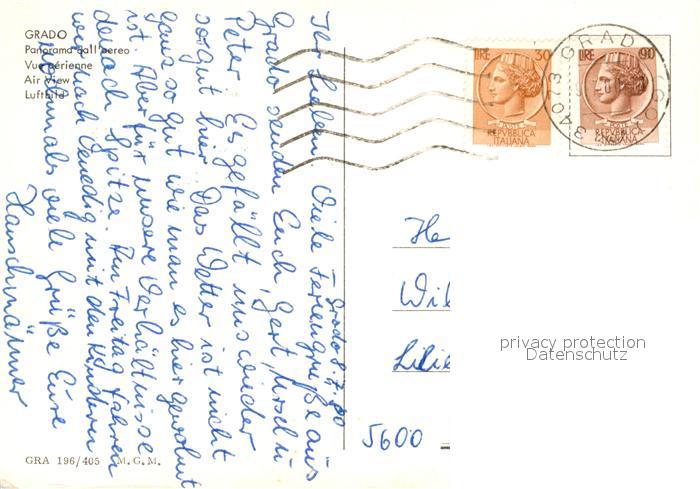 GRADO
Panorama dall'aereo
Vue aérienne
Air View
Luftbild
Grado 8. 7. 80
Ihr Lieben! Viele Feriengrüße aus
Grado senden Euch Gert, Ursel u.
Peter. Es gefällt uns wieder
so gut hier. Das Wetter ist nicht
ganz so gut wie man es hier gewohnt
ist. Aber für unsere Verhältnisse
danach Spitze. Am Freitag fahren
wir nach Venedig mit den Kindern
nochmals viele Grüße Eure
LIRE 30
REPVBBLICA
ITALIANA
LIRE 90
REPVBBLICA
ITALIANA
34073 GRADO GO
He
Wil
Lilie
5600
privacy protection
Datenschutz
GRA 196/405 M. G. M.